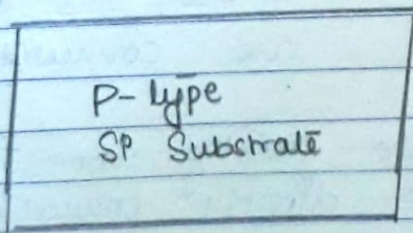 P-type
SP Substrate